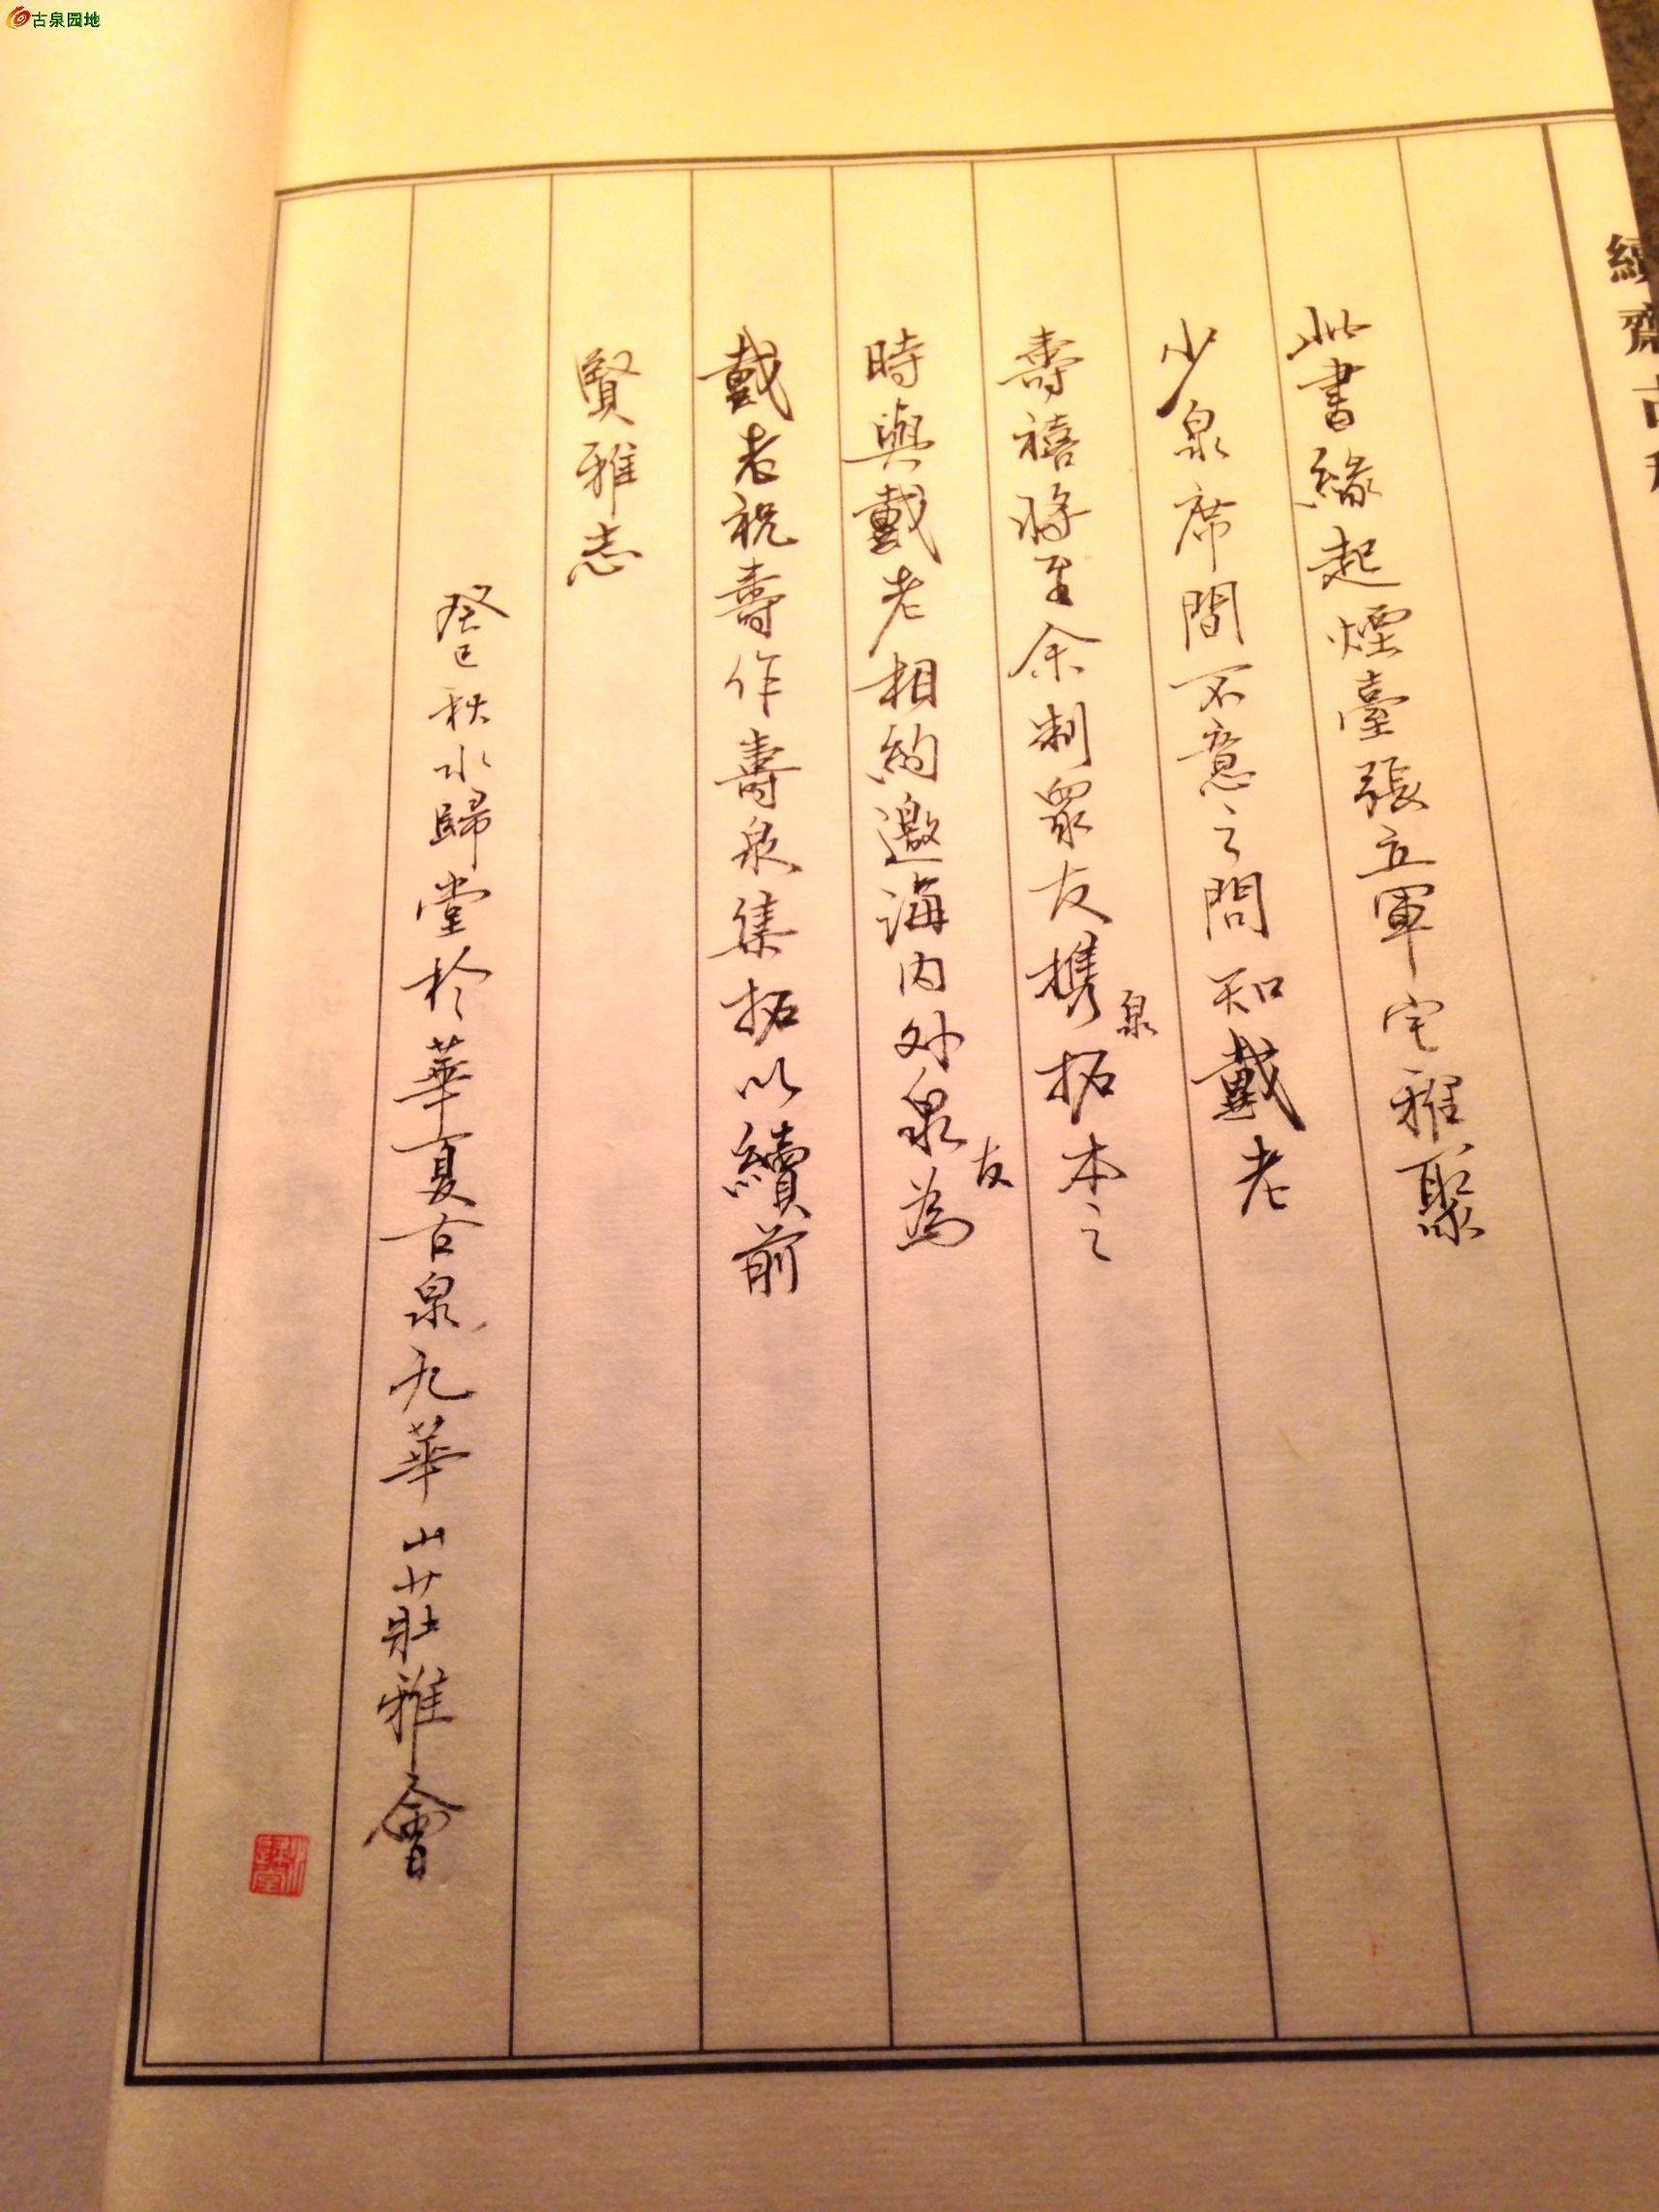 古泉园地
此書緣起煙臺張立軍宅雅聚
少泉席間不意之問知戴老
壽禧將至余制眾友攜泉拓本之
時與戴老相約邀海内外泉友為
戴老祝壽作壽泉集拓以續前
賢雅志
癸巳秋水歸堂於華夏古泉九華山莊雅會